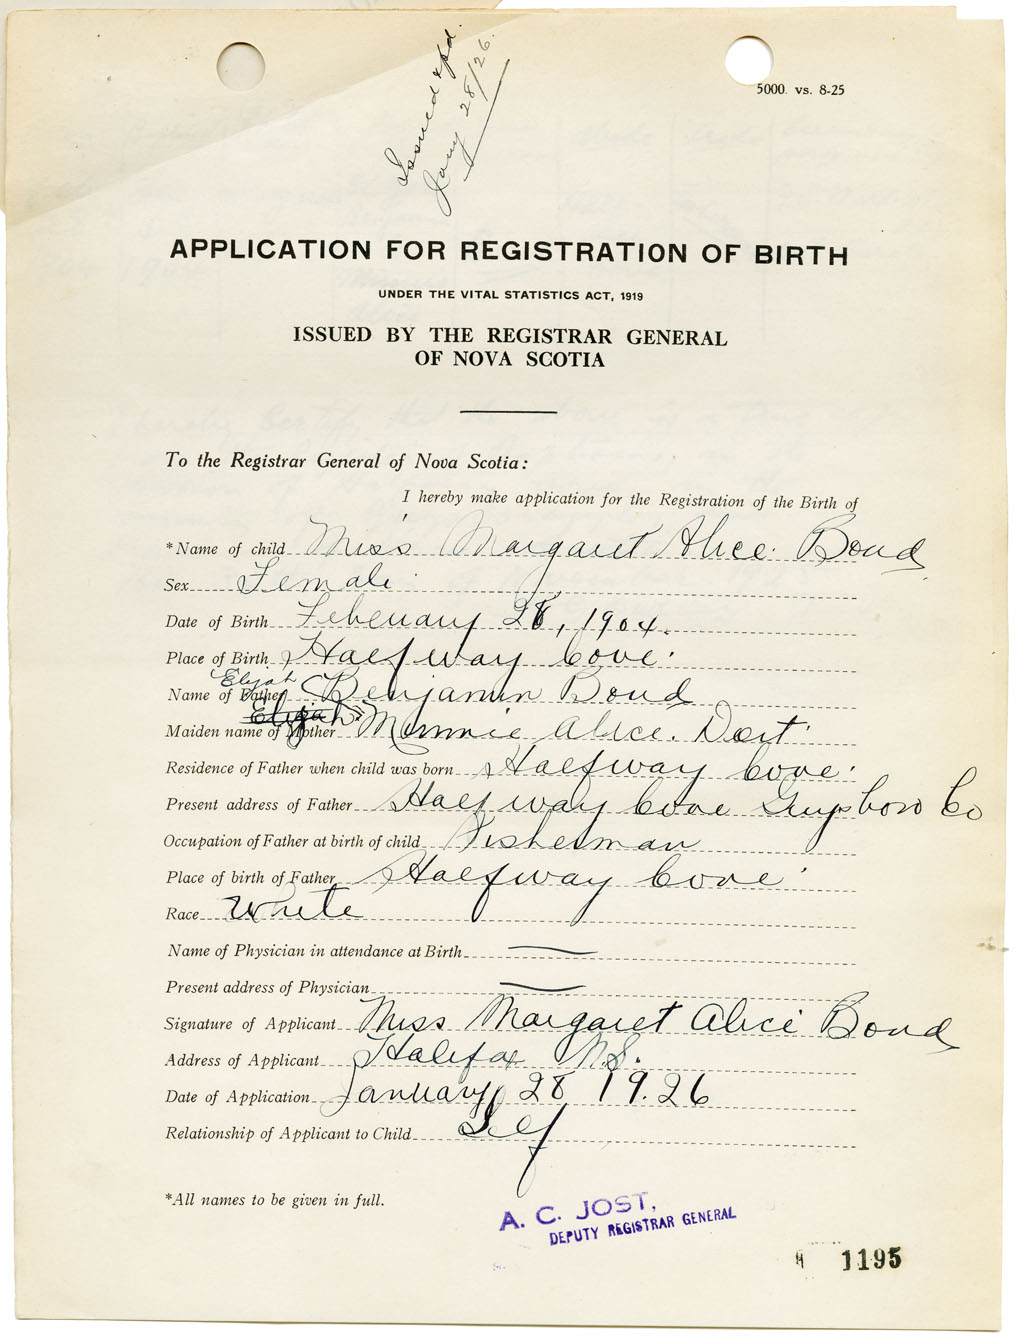 Issued & pd.
Jany 28/26.
5000. vs. 8-25
APPLICATION FOR REGISTRATION OF BIRTH
UNDER THE VITAL STATISTICS ACT, 1919
ISSUED BY THE REGISTRAR GENERAL
OF NOVA SCOTIA
To the Registrar General of Nova Scotia:
I hereby make application for the Registration of the Birth of
*Name of child Miss Margaret Alice. Bond
Sex Female
Date of Birth Febeuary 28, 1904.
Place of Birth Halfway Cove.
Elijah
Name of Father Benjamin Bond
Elijah
Maiden name of Mother Minnie Alice. Dort
Residence of Father when child was born Halfway Cove.
Present address of Father Halfway Cove Guysboro Co
Occupation of Father at birth of child Fisherman
Place of birth of Father Halfway Cove
Race White
Name of Physician in attendance at Birth —
Present address of Physician —
Signature of Applicant Miss Margaret Alice Bond
Address of Applicant Halifax N.S.
Date of Application January 28 19.26
Relationship of Applicant to Child Self
*All names to be given in full.
A. C. JOST,
DEPUTY REGISTRAR GENERAL
1195